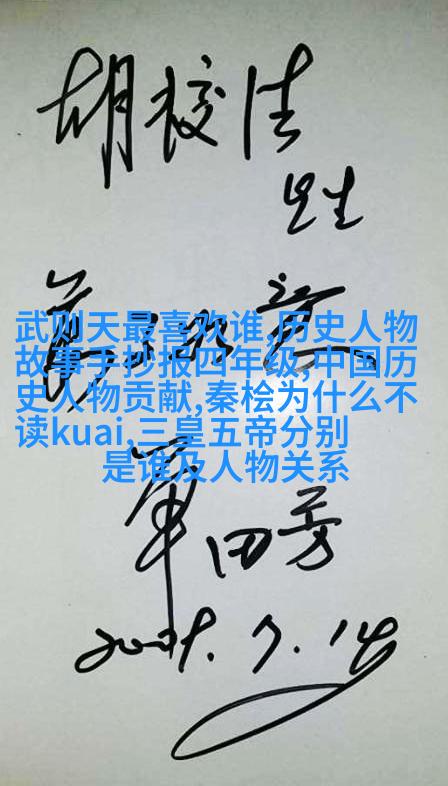 胡
先生
武则天最喜欢谁,历史人物
故事手抄报四年级,中国历
史人物贡献,秦桧为什么不
读kuai,三皇五帝分别
是谁及人物关系
单田芳
7.14